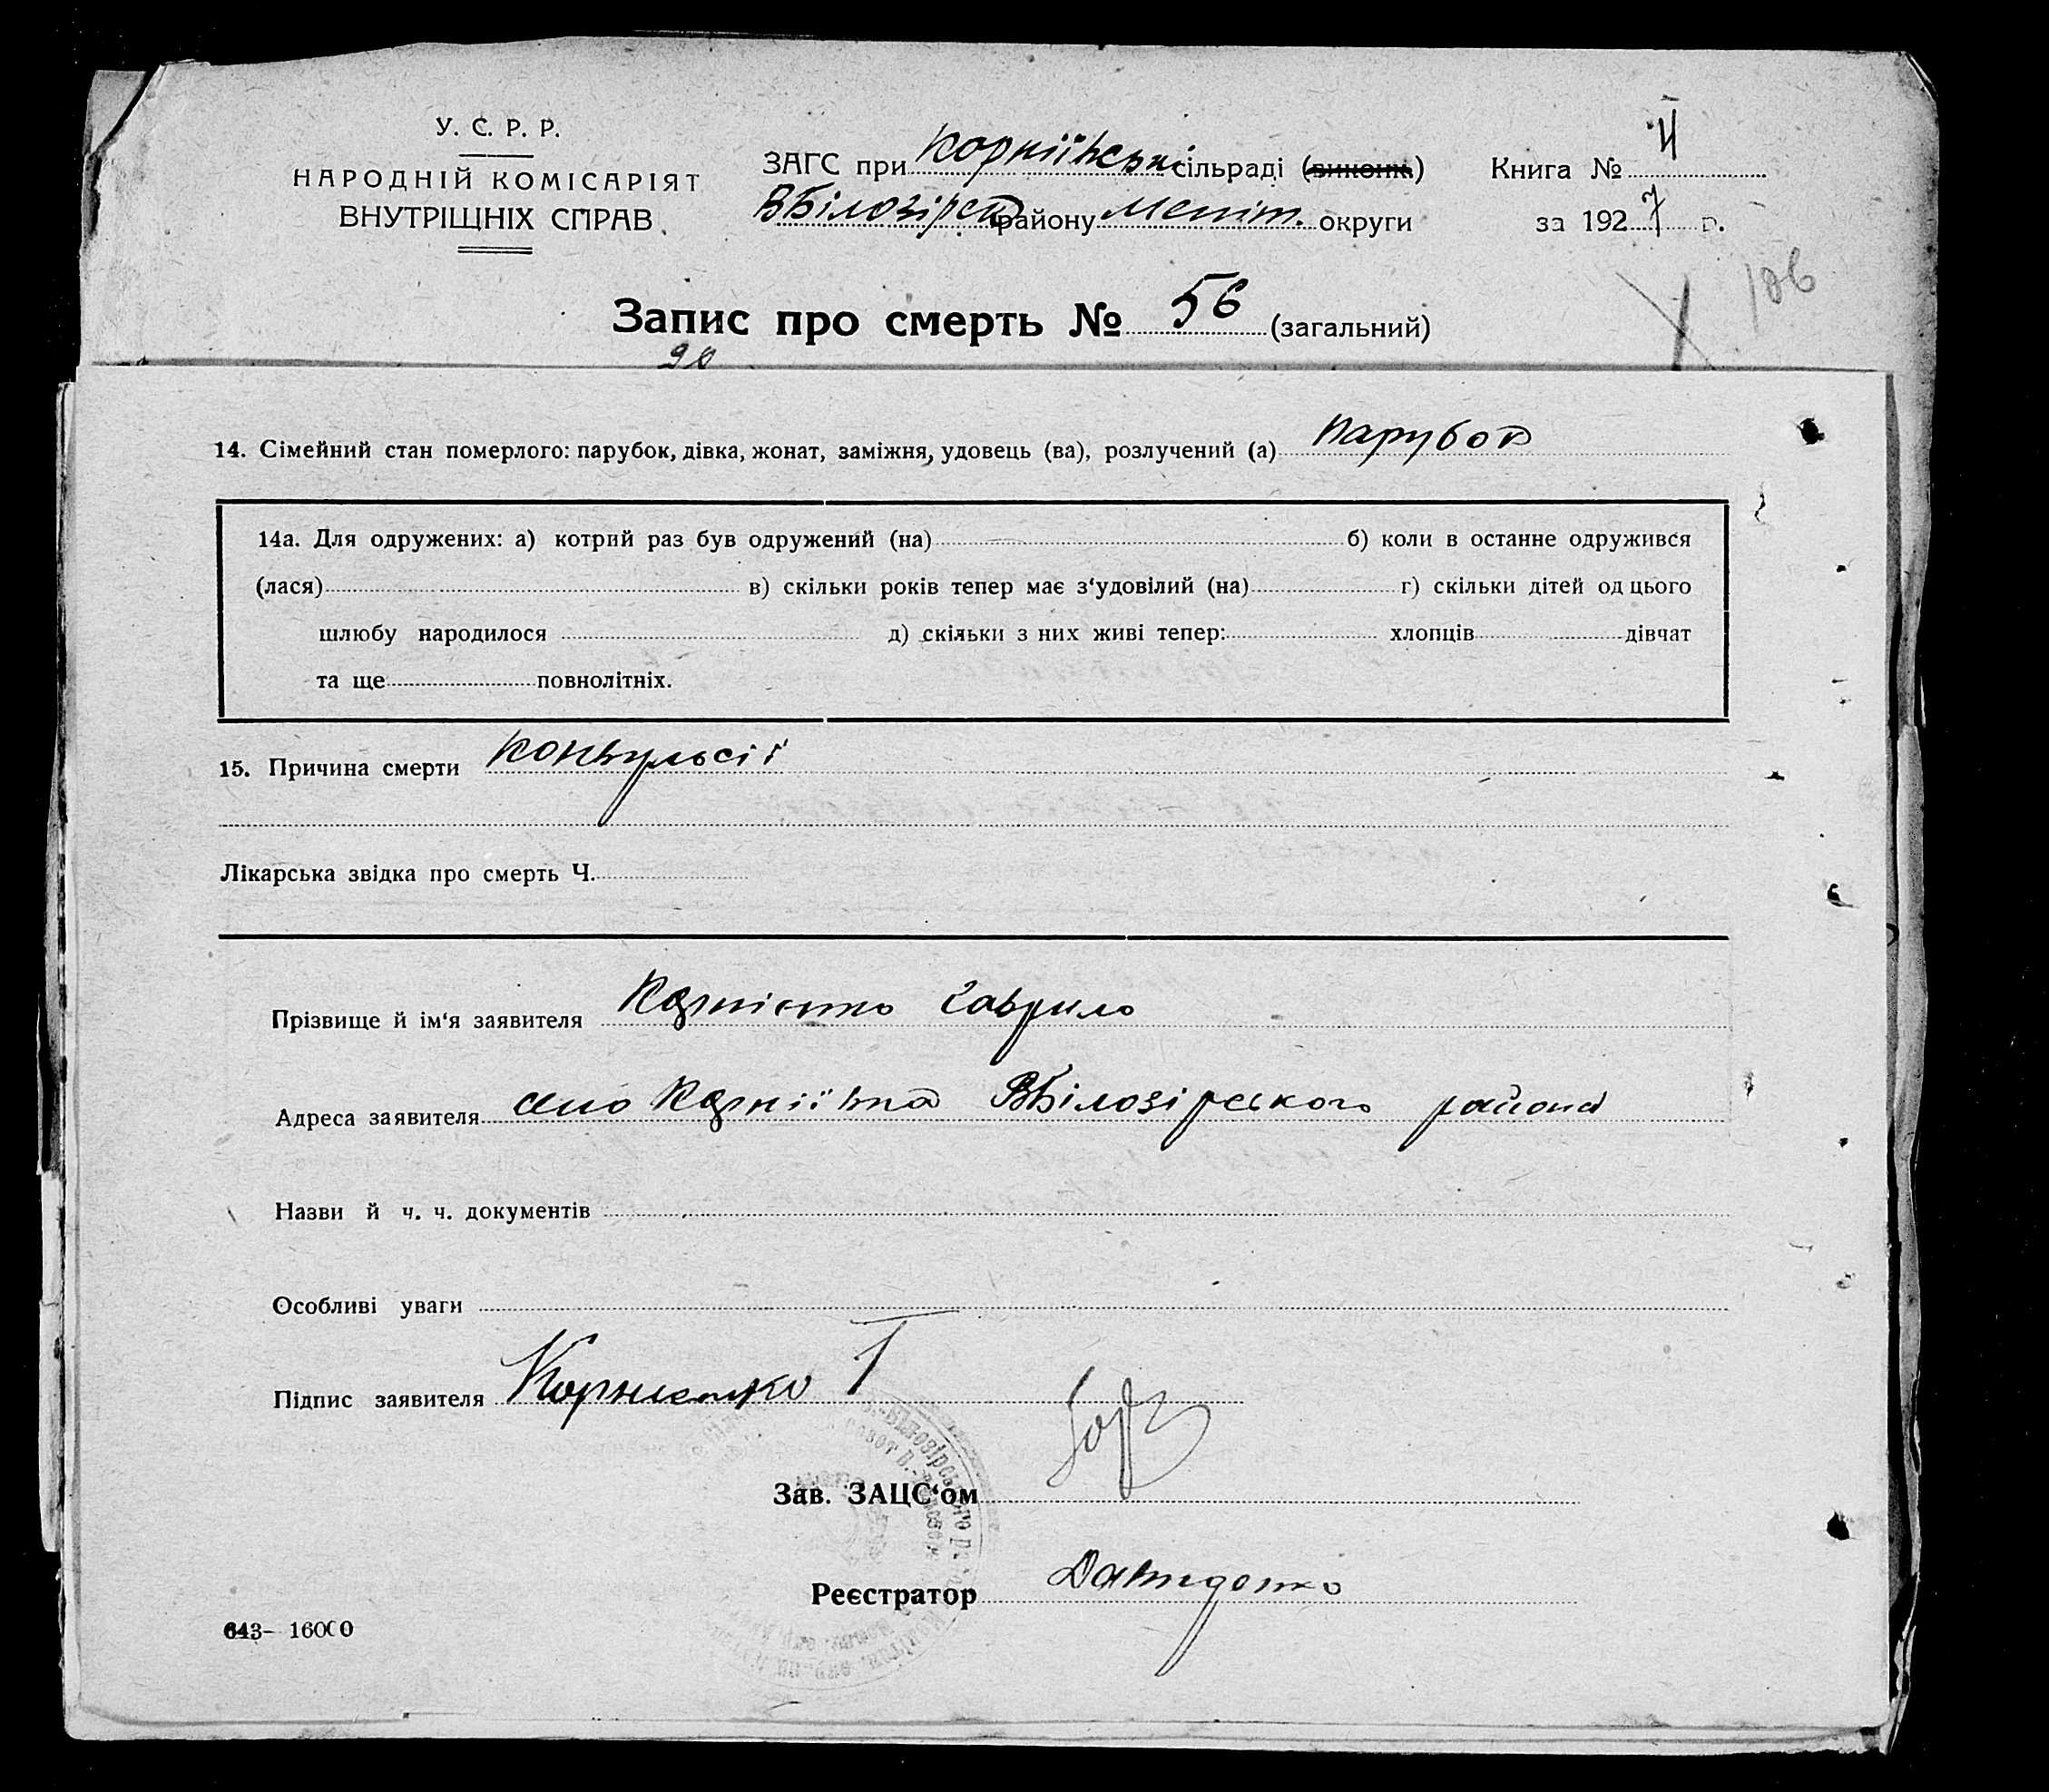 У. С. Р. Р.
НАРОДНІЙ КОМІСАРІЯТ
ВНУТРІЩНІХ СПРАВ
ЗАГС при Корніївські сільраді (виконк.)
ВБілозірськ району Меліт. округи
Книга № II
за 1927 р.
106
Запис про смерть № 56 (загальний)
14. Сімейний стан померлого: парубок, дівка, жонат, заміжня, удовець (ва), розлучений (а) парубок
14а. Для одружених: а) котрий раз був одружений (на) б) коли в останне одружився
(лася) в) скільки років тепер має з‘удовілий (на) г) скільки дітей од цього
шлюбу народилося д) скільки з них живі тепер: хлопців дівчат
та ще повнолітніх.
15. Причина смерти конвульсії
Лікарська звідка про смерть Ч.
Прізвище й ім‘я заявителя Корнієнко Гаврило
Адреса заявителя село Корніївка ВБілозірського района
Назви й ч. ч. документів
Особливі уваги
Підпис заявителя Корниенко Г
Зав. ЗАЦС‘ом
Реєстратор Давиденко
643– 16000